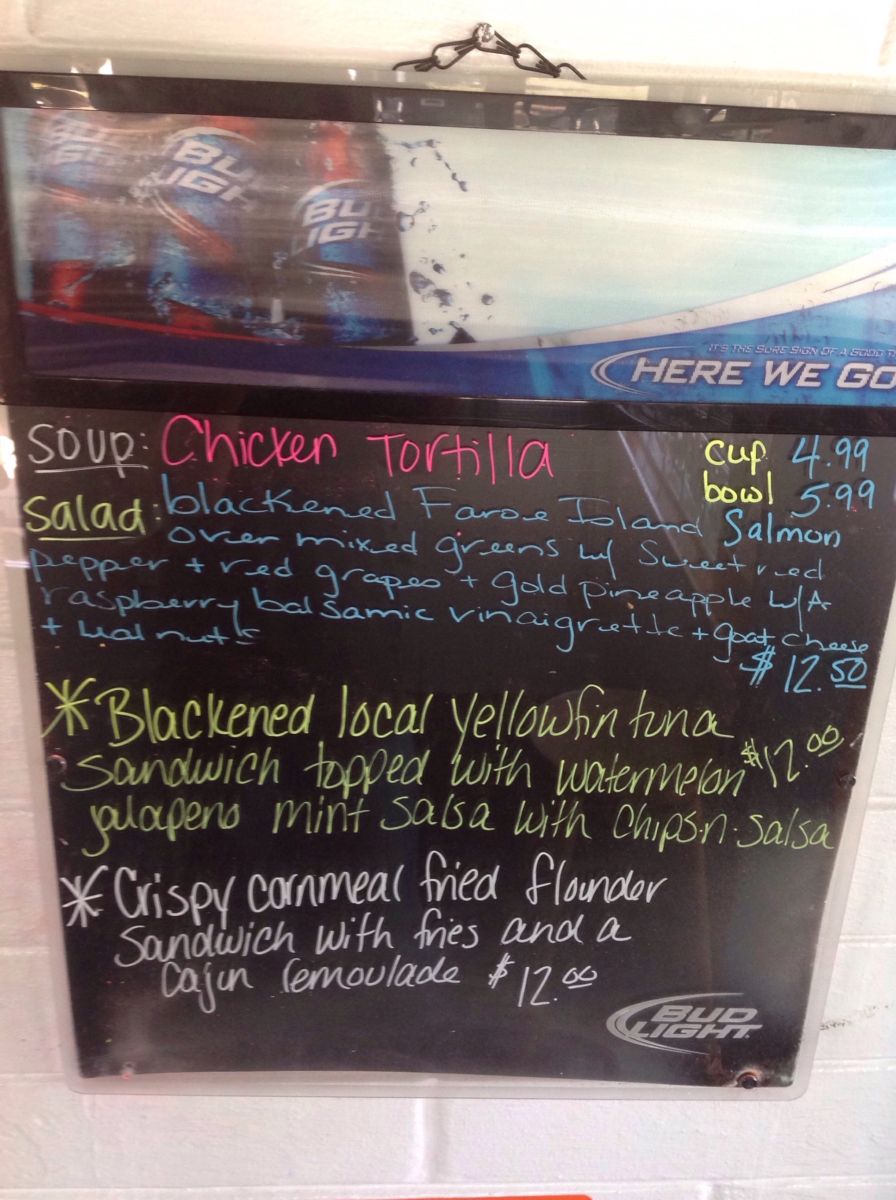 BUD LIGHT
BUD LIGHT
BUD LIGHT
IT'S THE SURE SIGN OF A GOOD T
HERE WE GO
Soup: Chicken Tortilla cup 4.99
bowl 5.99
Salad: blackened Faroe Island Salmon
over mixed greens w/ sweet red
pepper + red grapes + gold pineapple w/A
raspberry balsamic vinaigrette + goat cheese
+ walnuts
$12.50
*Blackened local yellowfin tuna
Sandwich topped with watermelon $12.00
jalapeno mint salsa with chips n. salsa
*Crispy cornmeal fried flounder
Sandwich with fries and a
Cajun remoulade $12.00
BUD
LIGHT